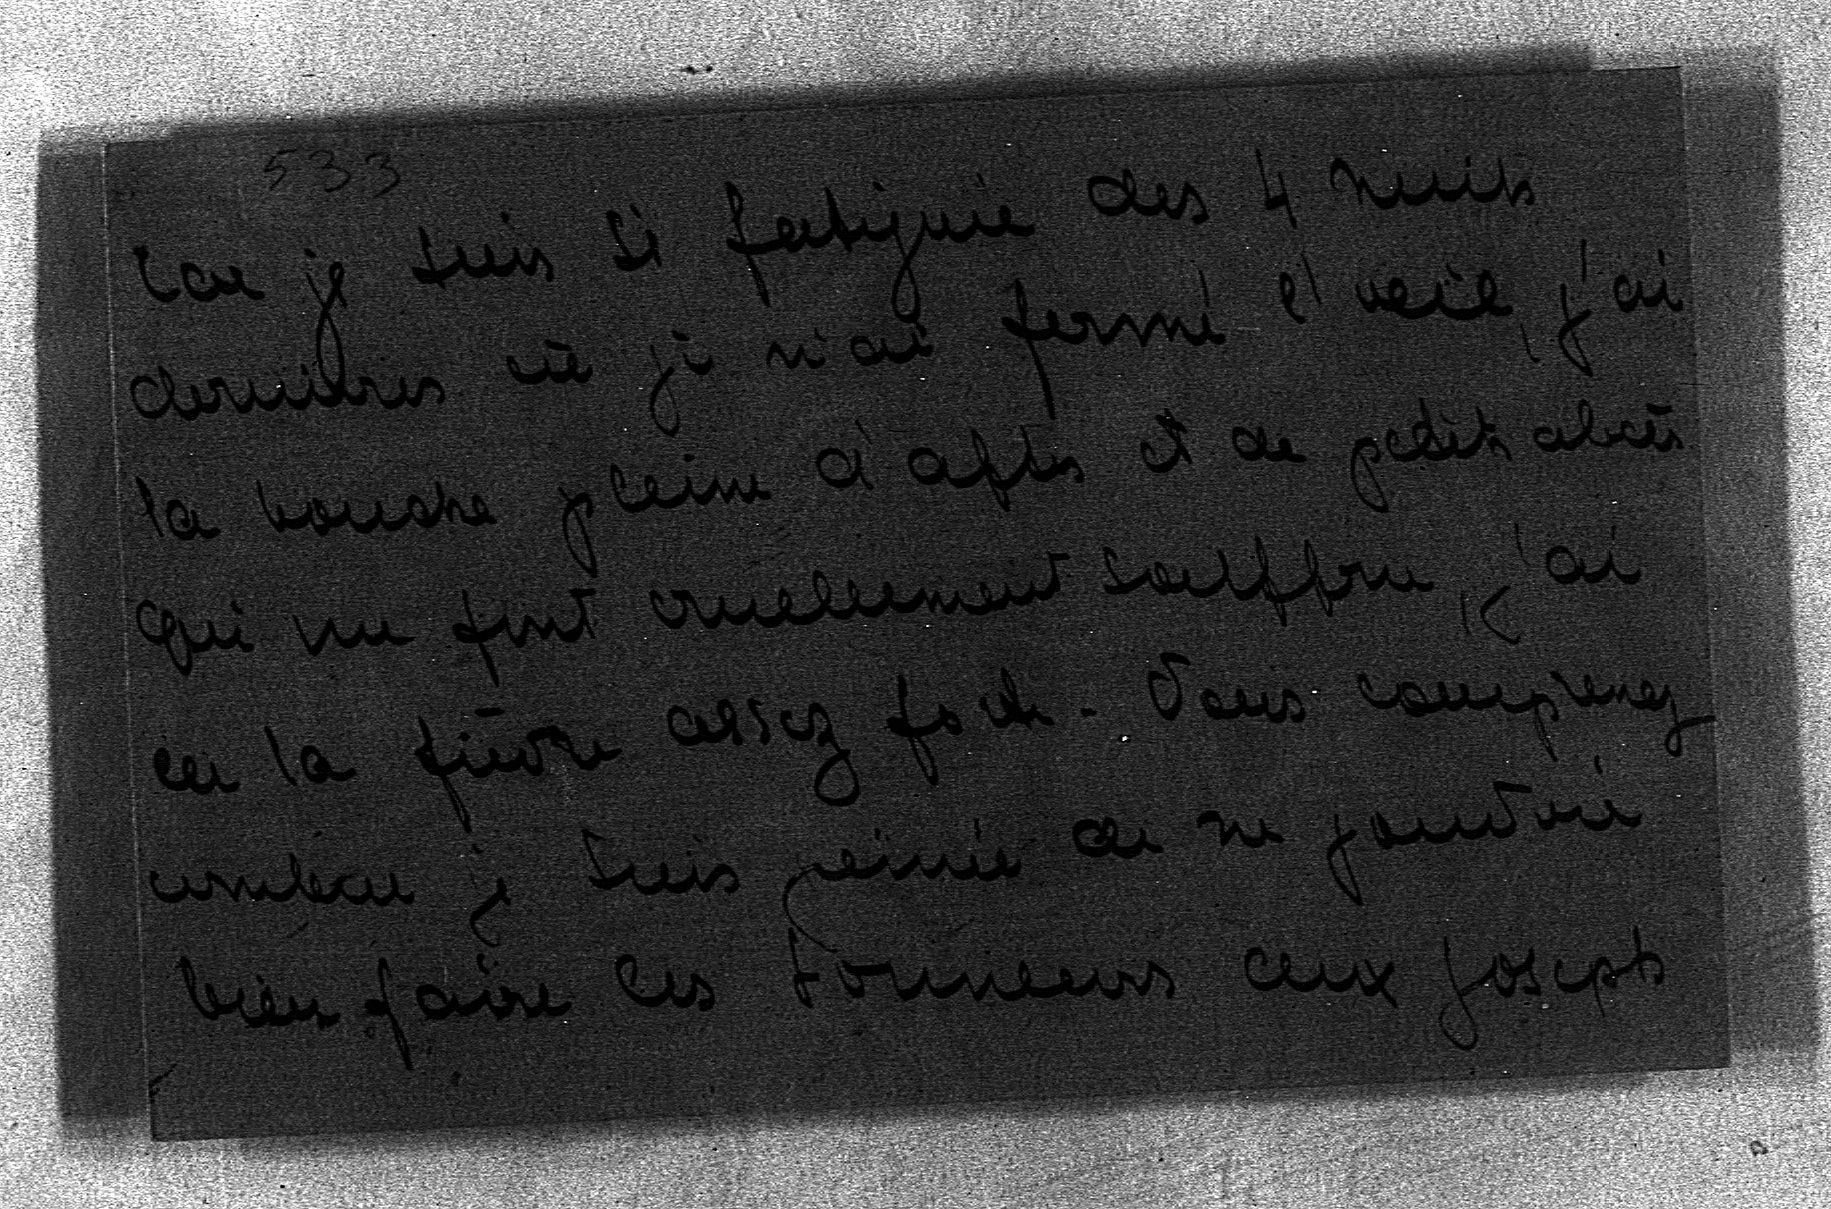 533
car je suis si fatiguée des 4 nuits
dernières où je n'ai fermé l'œil, j'ai
la bouche pleine d'aftes et de petits abcès
qui me font cruellement souffrir, j'ai
eu la fièvre assez forte - Vous comprenez
combien je suis peinée de ne pouvoir
bien faire les honneurs aux Joseph